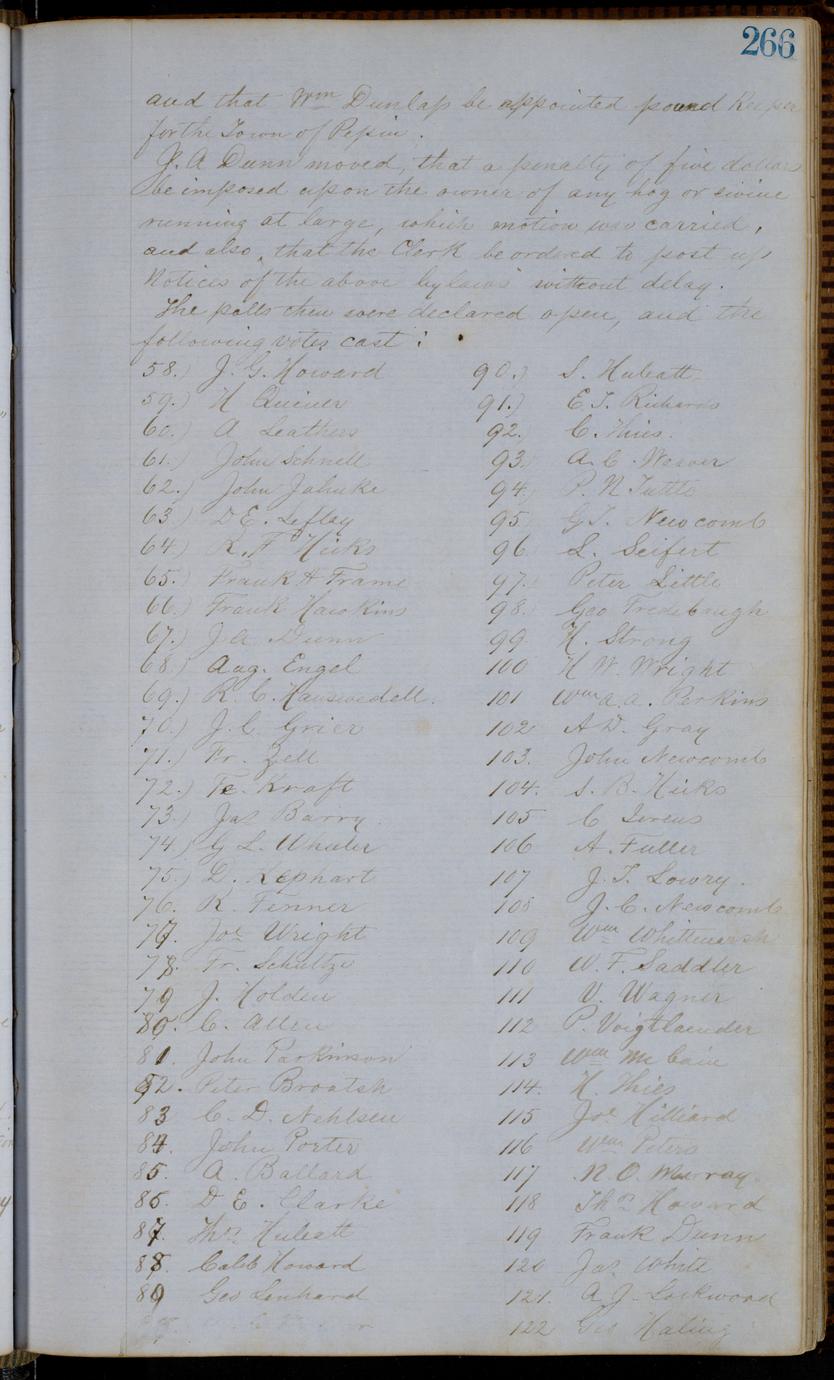 266
and that Wm Dunlap be appointed pound Keeper
for the Town of Pepin.
J. A Dunn moved, that a penalty of five dollars
be imposed upon the owner of any hog or swine
running at large, which motion was carried,
and also, that the Clerk be ordered to post up
Notices of the above bylaws without delay.
The polls then were declared open, and the
following votes cast:
58.) J. G. Howard
59.) H Quiner
60.) A Leathers
61.) John Schnell
62.) John Jahnke
63) D E. Leflay
64) R. F Hicks
65.) Frank H Frame
66.) Frank Hawkins
67.) J. A Dunn
68.) Aug. Engel
69.) R. C. Hauswedell.
70.) J. C. Grier
71.) Fr. Zell
72.) Fe. Kraft
73.) Jas Barry
74.) G L. Wheeler
75.) D. Kephart
76. R. Fenner
77. Jos Wright
78. Fr. Schultze
79 J. Holden
80. C. Allen
81. John Parkinson
82. Peter Broatsh
83 C. D. Nehlsen
84. John Porter
85. A. Ballard
86. D E. Clarke
87. Thos Hubatt
88. Caleb Howard
89 Geo Lenhard
90.) S. Hubatt
91.) E T. Richards
92. C. Thies.
93.) A. C. Weaver
94.) P. N Tuttle
95 G T. Newcomb
96 L. Seifert
97. Peter Little
98. Geo Fredebaugh
99 H. Strong
100 H W. Wright
101 Wm A. A. Perkins
102 A D. Gray
103. John Newcomb
104. S. B. Hicks
105 C
106 A. Fuller
107 J. T. Lowry.
108 J. C. Newcomb
109 Wm Whitmarsh
110 W. F. Saddler
111 V. Wagner
112 P. Voigtlaender
113 Wm McCain
114. H. Thies
115 Joe Hilliard
116 Wm Peters
117 N. O. Murray.
118 Thos Howard
119 Frank Dunn
120 Jas White
121. A J. Lockwood
122 Geo Haling